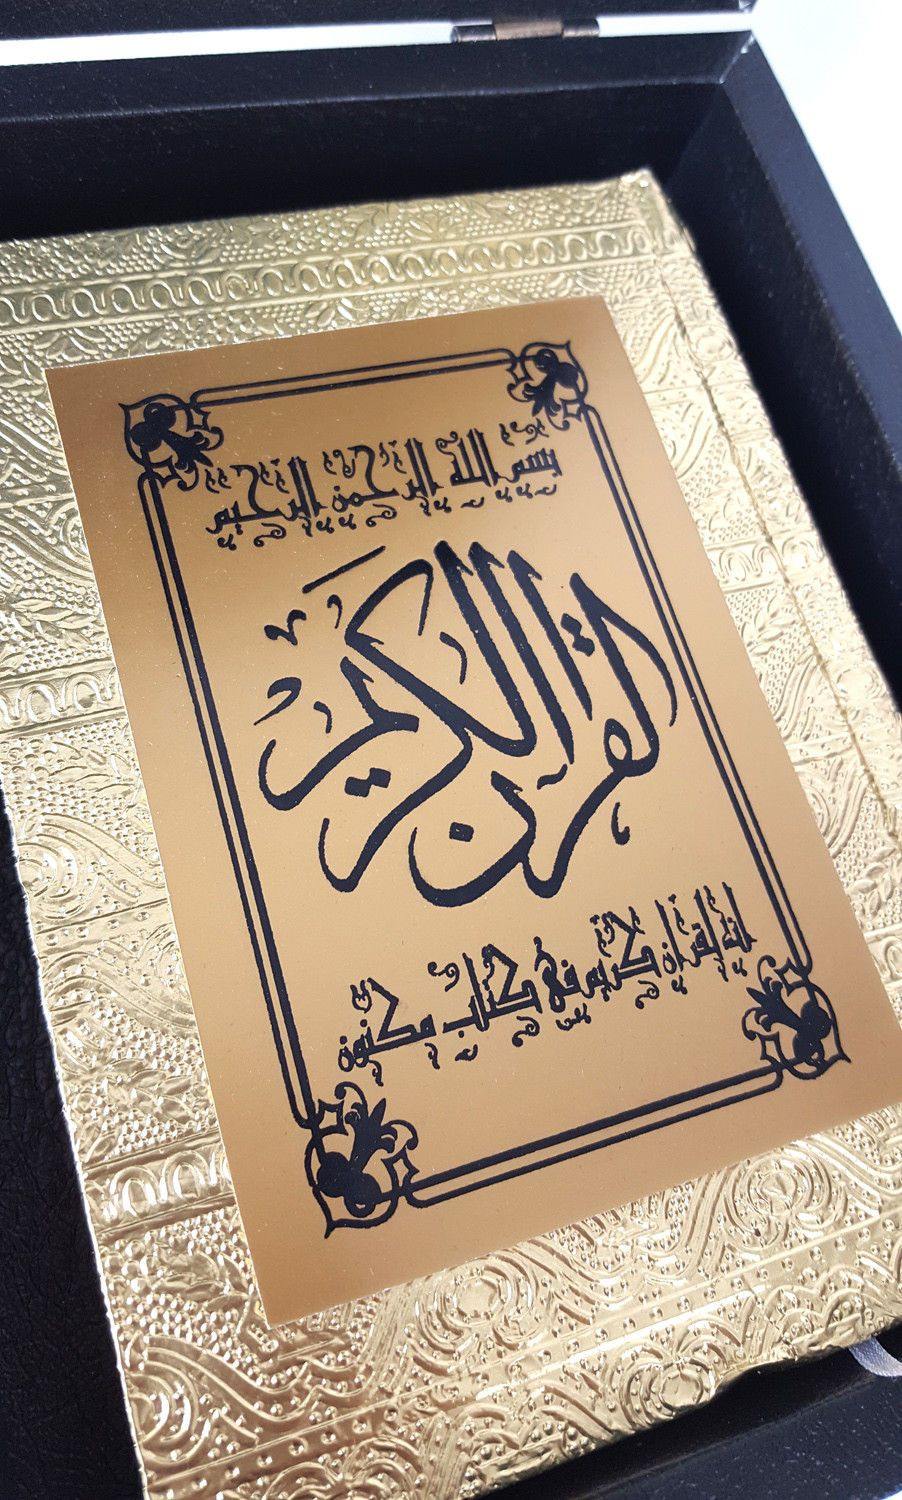 بسم الله الرحمن الرحيم
القرآن الكريم
انه لقرآن كريم في كتاب مكنون